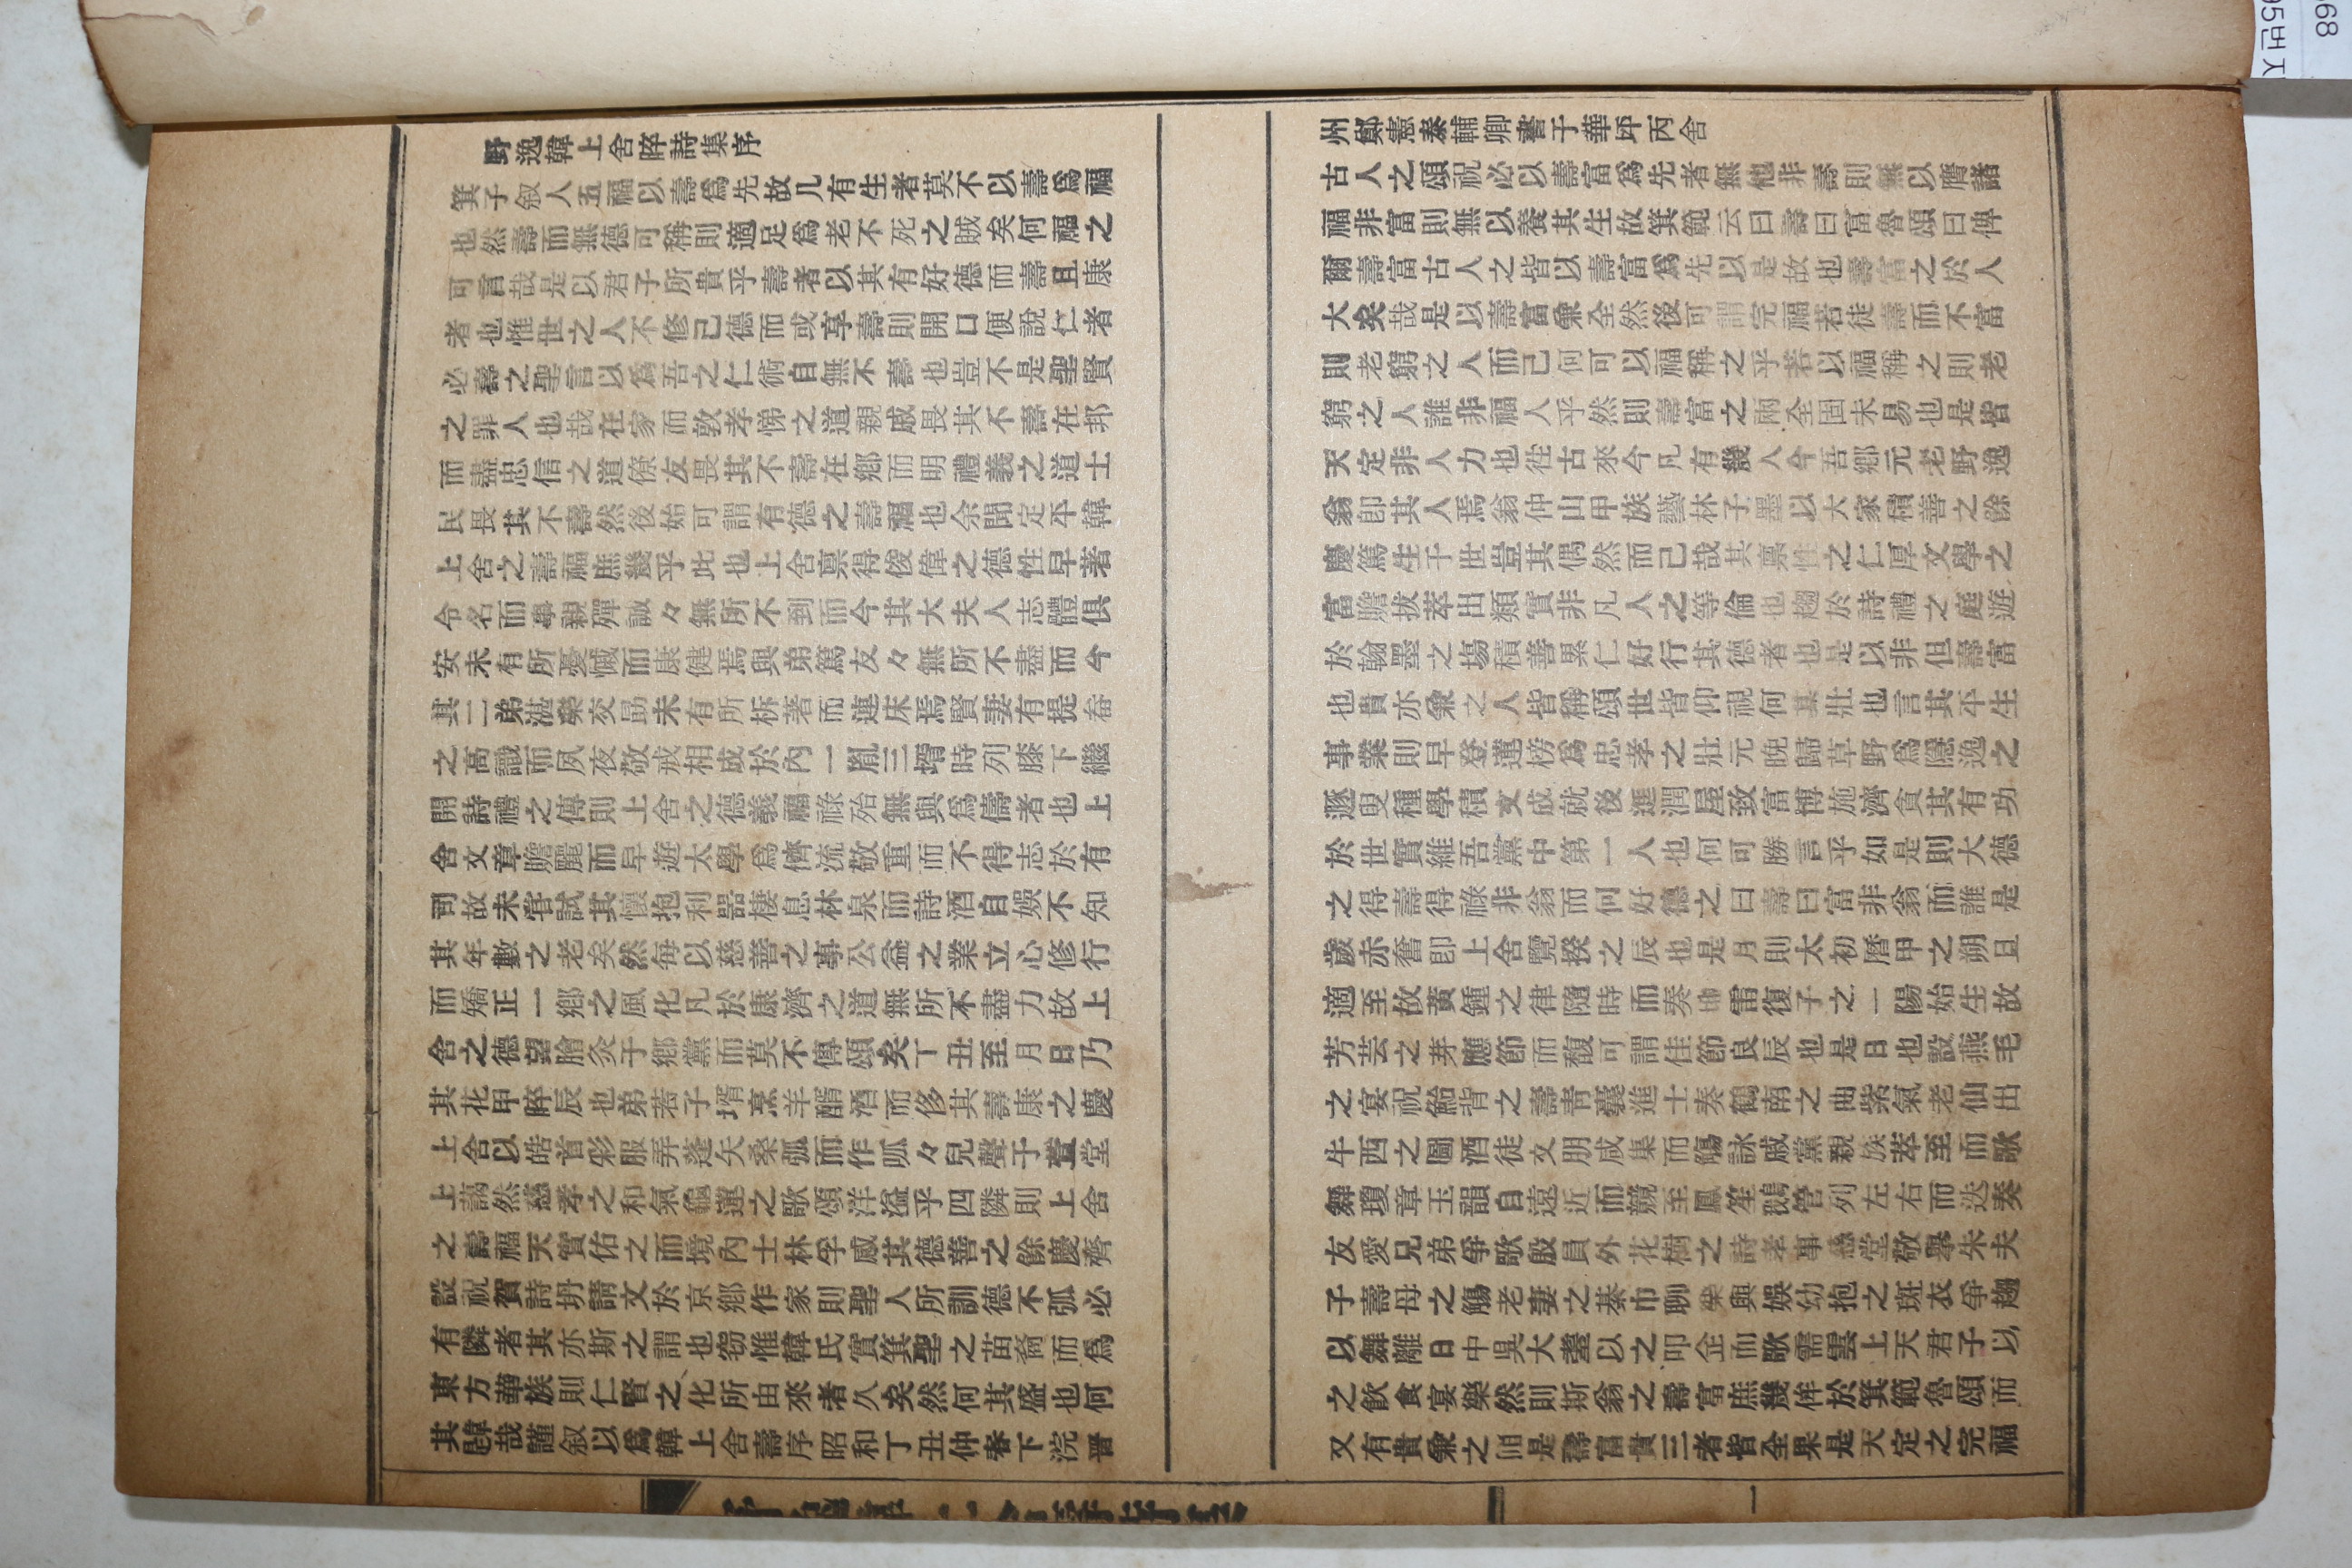 野逸韓上舍晬詩集序
箕子叙人五福以壽爲先故凡有生者莫不以壽爲福
也然壽而無德可稱則適足爲老不死之賊矣何福之
可言哉是以君子所貴乎壽者以其有好德而壽且康
者也惟世之人不修己德而或享壽則開口便說仁者
必壽之聖言以爲吾之仁術自無不壽也豈不是聖賢
之罪人也哉在家而敦孝悌之道親戚畏其不壽在邦
而盡忠信之道僚友畏其不壽在鄕而明禮義之道士
民畏其不壽然後始可謂有德之壽福也余聞定平韓
上舍之壽福庶幾乎此也上舍禀得俊偉之德性早著
令名而事親殫誠々無所不到而今其大夫人志體俱
安未有所憂慽而康健焉與弟篤友々無所不盡而今
其二弟湛樂交勗未有所柝著而連床焉賢妻有提畚
之高識而夙夜敬戒相成於內一胤三壻時列膝下繼
開詩禮之傳則上舍之德義福祿殆無與爲儔者也上
舍文章贍麗而早遊太學爲儕流敬重而不得志於有
司故未甞試其懷抱利器棲息林泉而詩酒自娛不知
其年數之老矣然每以慈善之事公益之業立心修行
而矯正一鄕之風化凡於康濟之道無所不盡力故上
舍之德望膾炙于鄕黨而莫不傳頌矣丁丑至月日乃
其花甲晬辰也弟若子壻烹羊釃酒而侈其壽康之慶
上舍以皓首彩服弄蓬矢桑弧而作呱々兒聲于萱堂
上藹然慈孝之和氣龜蓮之歌頌洋溢乎四隣則上舍
之壽福天實佑之而境內士林孚感其德善之餘慶齊
設祝賀詩坍請文於京鄕作家則聖人所訓德不弧必
有隣者其亦斯之謂也窃惟韓氏實箕聖之苗裔而爲
東方華族則仁賢之化所由來者久矣然何其盛也何
其韙哉謹叙以爲韓上舍壽序昭和丁丑仲春下浣晋
州鄭憲泰輔卿書于華坪丙舍
古人之頌祝必以壽富爲先者無他非壽則無以膺諸
福非富則無以養其生故箕範云曰壽曰富魯頌曰俾
爾壽富古人之皆以壽富爲先以是故也壽富之於人
大矣哉是以壽富兼全然後可謂完福若徒壽而不富
則老窮之人而已何可以福稱之乎若以福稱之則老
窮之人誰非福人乎然則壽富之兩全固未易也是皆
天定非人力也徃古來今凡有幾人今吾鄕元老野逸
翁卽其人焉翁仲山甲族藝林子墨以大家積善之餘
慶篤生于世豈其偶然而已哉其禀性之仁厚文學之
富贍拔萃出類實非凡人之等倫也趨於詩禮之庭遊
於翰墨之塲積善累仁好行其德者也是以非但壽富
也貴亦兼之人皆稱頌世皆仰視何其壯也言其平生
事業則早登蓮榜爲忠孝之壯元晚歸草野爲隱逸之
遯叟種學積文成就後進潤屋致富博施濟貧其有功
於世實維吾黨中第一人也何可勝言乎如是則大德
之得壽得祿非翁而何好德之曰壽曰富非翁而誰是
歲赤奮卽上舍覽揆之辰也是月則太初曆甲之朔旦
適至故黃鍾之律隨時而奏地雷復子之一陽始生故
芳芸之芽應節而馥可謂佳節良辰也是日也設燕毛
之宴祝鮐背之壽靑囊進士奏鶴南之曲紫氣老仙出
牛西之圖酒徒文朋咸集而觴詠戚黨親族萃至而歌
舞瓊章玉韻自遠近而競至鳳笙鵝管列左右而迭奏
友愛兄弟爭歌殷員外花樹之詩孝事慈堂敬擧朱夫
子壽母之觴老妻之綦巾聊樂與娛幼抱之斑衣爭趨
以舞離日中吳大耋以之叩金而歌需雲上天君子以
之飮食宴樂然則斯翁之壽富庶幾侔於箕範魯頌而
又有貴兼之卽是壽富貴三者皆全果是天定之完福
一